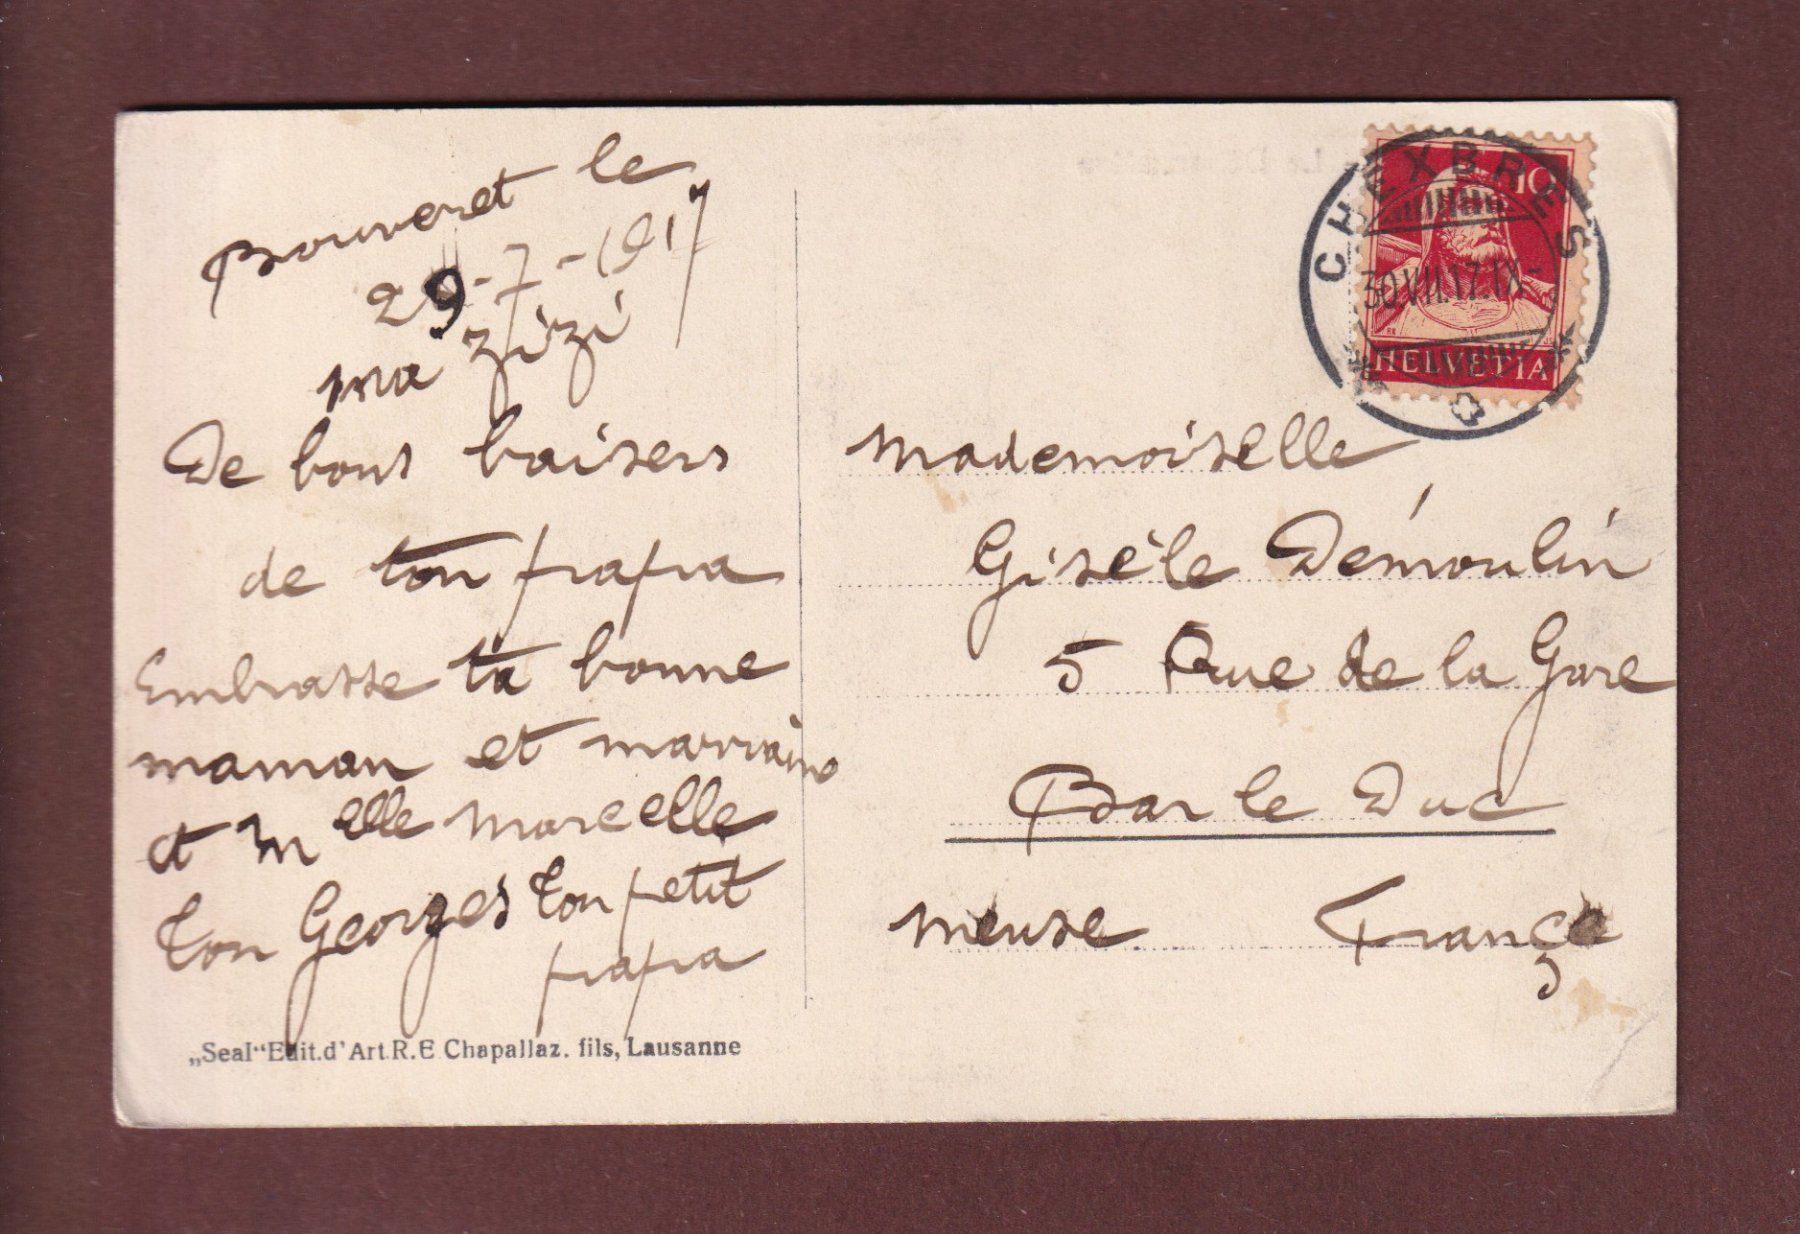 Bouveret le
29-7-1917
ma zizi
De bons baisers
de ton papa
Embrasse ta bonne
maman et marraine
et Melle Marcelle
ton Georges ton petit
papa
„Seal“ Edit.d'Art.R.E Chapallaz. fils, Lausanne
CHEXBRES
10
30.VII.17.IX-
HELVETIA
Mademoiselle
Gisèle Démoulin
5 Rue de la Gare
Bar le Duc
Meuse France